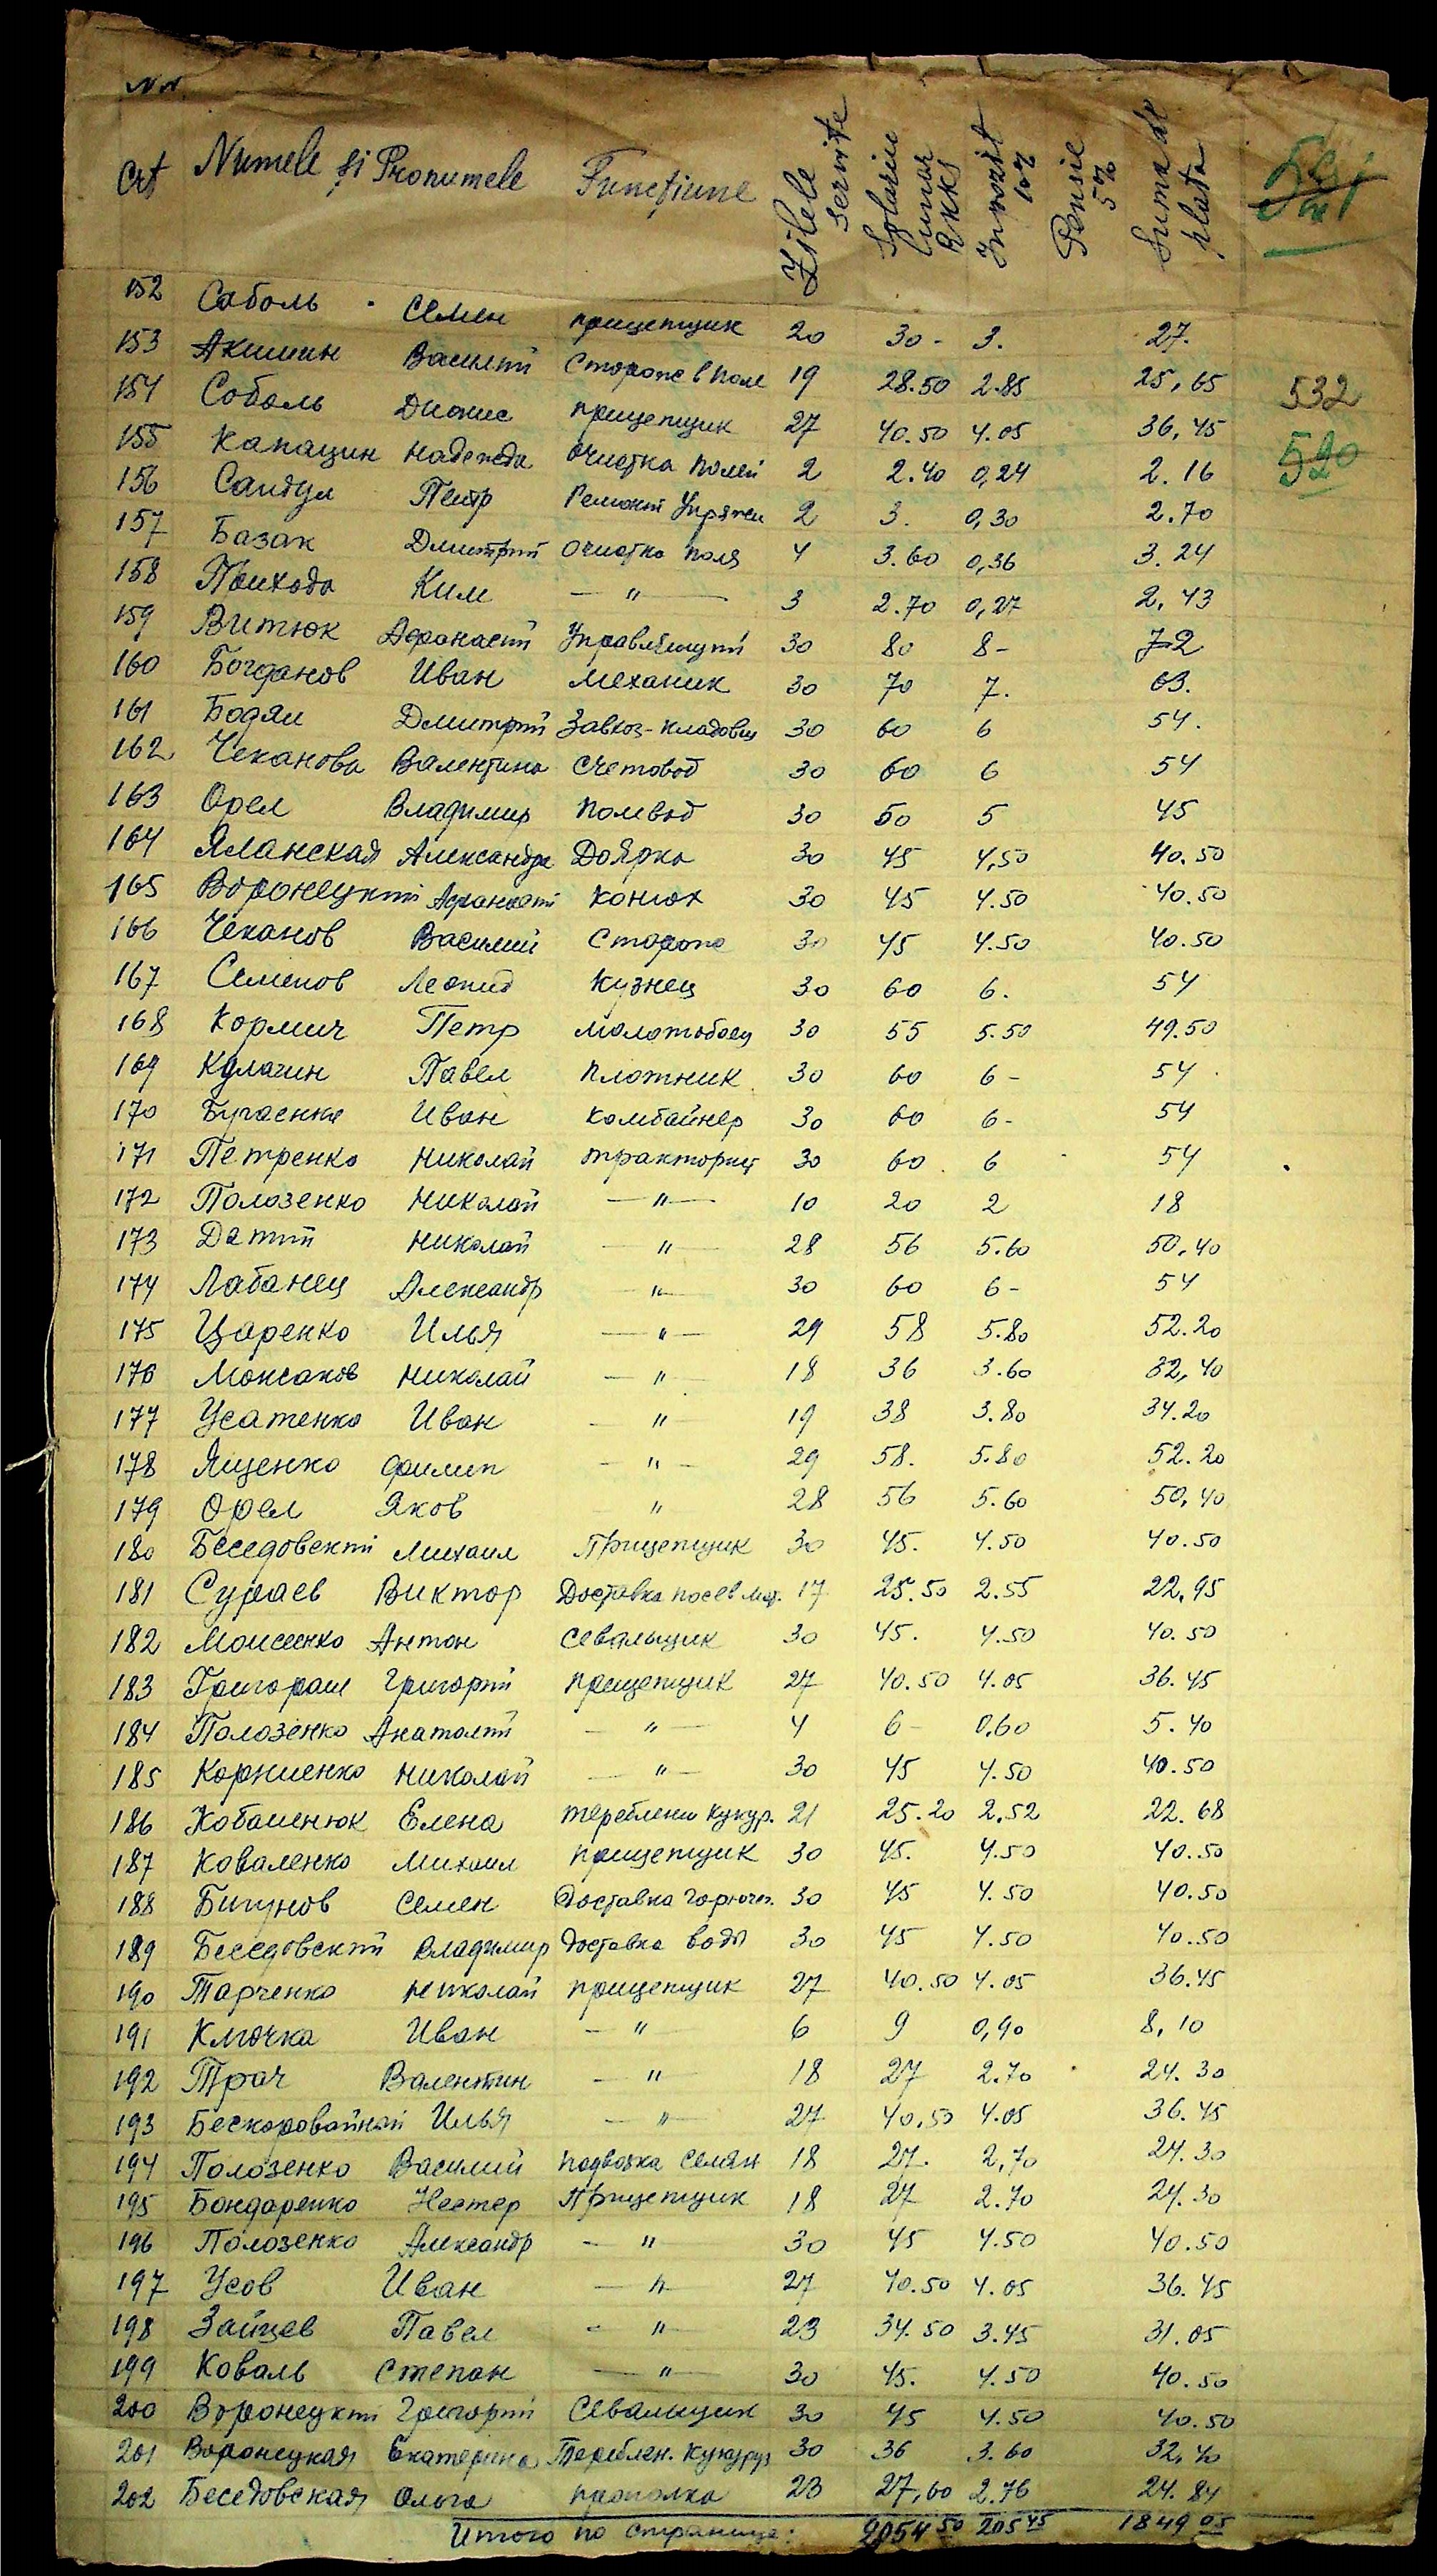 NN Crt Numele și Pronumele Funcțiune Zilele servite Salariu lunar RKKS Impozit 10% Pensie 5% Suma de plata
152 Соболь Семен прицепщик 20 30- 3. 27.
153 Акимин Василий Сторож в поле 19 28.50 2.85 25,65
532
154 Соболь Дионис прицепщик 27 40.50 4.05 36,45
520
155 Капацин Надежда Очистка полей 2 2.40 0,24 2.16
156 Сандул Петр Ремонт Упряжи 2 3. 0,30 2.70
157 Базак Дмитрий Очистка поля 4 3.60 0,36 3.24
158 Приходо Ким —"— 3 2.70 0,27 2,43
159 Витюк Афанасий Управляющий 30 80 8- 72
160 Богданов Иван механик 30 70 7. 63.
161 Бодян Дмитрий Завхоз-кладовщ 30 60 6 54.
162 Чеканова Валентина Счетовод 30 60 6 54
163 Орел Владимир полевод 30 50 5 45
164 Яланская Александра Доярка 30 45 4,50 40.50
165 Воронецкий Афанасий конюх 30 45 4.50 40.50
166 Чеканов Василий Сторож 30 45 4.50 40.50
167 Семенов Леонид кузнец 30 60 6. 54
168 Кормич Петр молотобоец 30 55 5.50 49.50
169 Кулагин Павел плотник 30 60 6- 54
170 Бугаенко Иван комбайнер 30 60 6- 54
171 Петренко Николай тракторист 30 60 6 54
172 Полозенко Николай —"— 10 20 2 18
173 Датий Николай —"— 28 56 5.60 50,40
174 Лабанец Александр —"— 30 60 6- 54
175 Царенко Илья —"— 29 58 5.80 52.20
176 Монсаков Николай —"— 18 36 3.60 32,40
177 Усатенко Иван —"— 19 38 3.80 34.20
178 Ященко Филип —"— 29 58. 5.80 52.20
179 Орел Яков " 28 56 5.60 50,40
180 Беседовский Михаил Прицепщик 30 45. 4.50 40.50
181 Сураев Виктор Доставка посев мат. 17 25.50 2.55 22,95
182 Моисеенко Антон Севальщик 30 45. 4.50 40.50
183 Григораш Григорий прицепщик 27 40.50 4.05 36.45
184 Полозенко Анатолий —"— 4 6- 0,60 5.40
185 Корниенко Николай —"— 30 45 4.50 40.50
186 Кобаненюк Елена тереблени кукур. 21 25.20 2,52 22.68
187 Коваленко Михаил прицепщик 30 45. 4.50 40.50
188 Бигунов Семен Доставка горючег. 30 45 4.50 40.50
189 Беседовский Владимир Доставка воды 30 45 4.50 40.50
190 Тарченко Николай прицепщик 27 40.50 4.05 36.45
191 Клочка Иван —"— 6 9 0,90 8,10
192 Трач Валентин —"— 18 27 2.70 24.30
193 Бескоровайный Илья —"— 27 40,50 4.05 36.45
194 Полозенко Василий подвозка семян 18 27. 2,70 24.30
195 Бондаренко Нестер Прицепщик 18 27 2.70 24.30
196 Полозенко Александр —"— 30 45 4.50 40.50
197 Усов Иван —"— 27 40.50 4.05 36.45
198 Зайцев Павел —"— 23 34.50 3.45 31.05
199 Коваль Степан —"— 30 45. 4.50 40.50
200 Воронецкий Григорий Севальщик 30 45 4.50 40.50
201 Воронецкая Екатерина Тереблен. кукуруз 30 36 3.60 32,40
202 Беседовская Ольга прополка 23 27,60 2.76 24.84
Итого по странице: 2054 50 205 45 1849 05